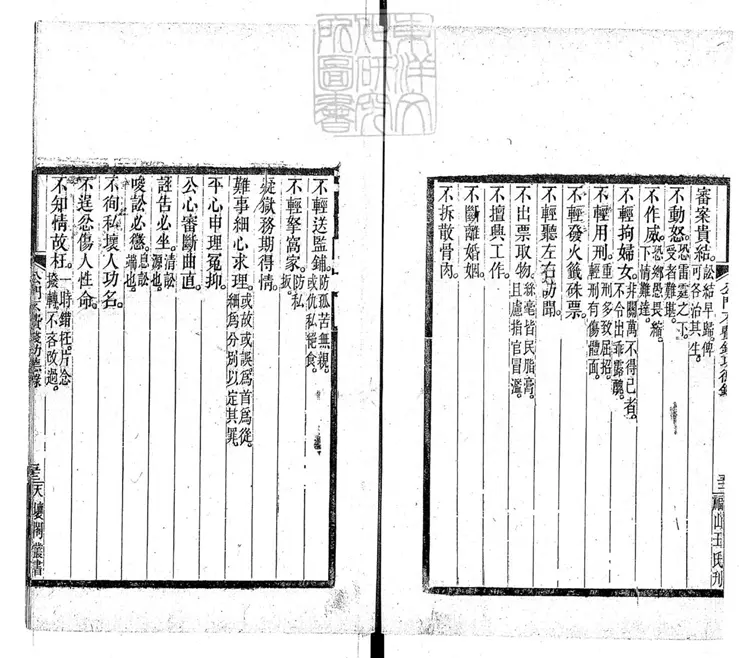 審案貴結。訟結早歸。俾可各治其生。
不動怒。恐雷霆之下。受者難堪。
不作威。恐鄉愚畏縮。下情難達。
不輕拘婦女。非關萬不得已者。不令出乖露醜。
不輕用刑。重刑多致屈招。輕刑有傷體面。
不輕發火籤硃票。
不輕聽左右訪聞。
不出票取物。絲毫皆民脂膏。且慮指官冒濫。
不擅興工作。
不斷離婚姻。
不拆散骨肉。
不輕送監鋪。防孤苦無親。或仇私絕食。
不輕拏窩家。防私扳。
疑獄務期得情。
難事細心求理。或故或誤。為首為從。細為分別。以定其罪。
平心申理冤抑。
公心審斷曲直。
誣告必坐。清訟源也。
唆訟必懲。息訟端也。
不徇私壞人功名。
不逞忿傷人性命。
不知情故枉。一時錯枉。片念撥轉。不吝改過。
公門不費錢功德錄
天壤閣叢書
福山王氏刊
東洋文化研究所圖書